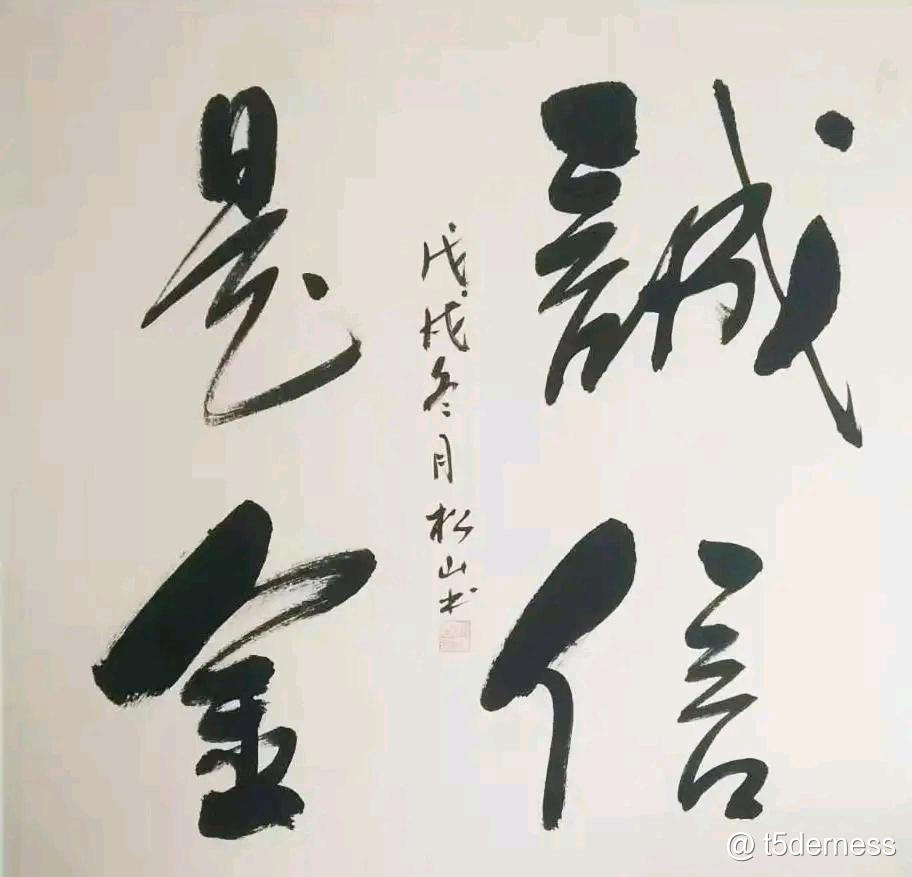 誠信
是金
戊戌冬月松山书
@ t5derness